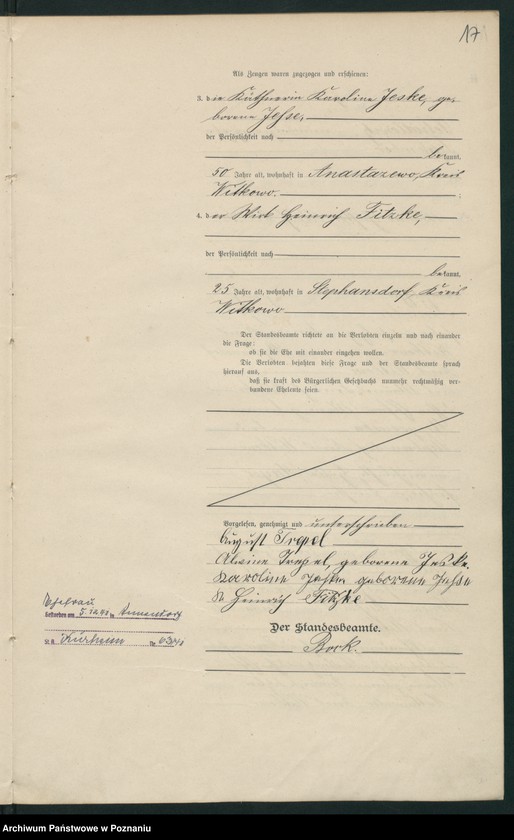 17
Als Zeugen waren zugezogen und erschienen:
3. die Käthnerin Karoline Jeske, ge
borene Jesse,
der Persönlichkeit nach
bekannt,
50 Jahre alt, wohnhaft in Anastazewo, Kreis
Witkowo. ;
4. der Wirt Heinrich Fitzke,
der Persönlichkeit nach
bekannt,
25 Jahre alt, wohnhaft in Stephansdorf, Kreis
Witkowo
Der Standesbeamte richtete an die Verlobten einzeln und nach einander
die Frage:
ob sie die Ehe mit einander eingehen wollen.
Die Verlobten bejahten diese Frage und der Standesbeamte sprach
hierauf aus,
daß sie kraft des Bürgerlichen Gesetzbuchs nunmehr rechtmäßig ver-
bundene Eheleute seien.
Vorgelesen, genehmigt und unterschrieben
August Trepel
Alwine Trepel, geborene Jeske.
Karoline geborene Jesse
Heinrich Fitzke
Der Standesbeamte.
Bork.
Ehefrau
Gestorben am in Ammendorf
St. A. Nr.
Archiwum Państwowe w Poznaniu